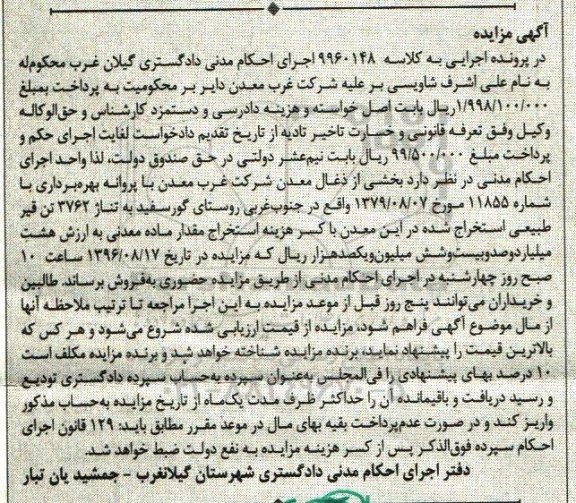 آگهی مزایده
در پرونده اجرایی به کلاسه ۹۹۶۰۱۴۸ اجرای احکام مدنی دادگستری گیلان غرب محکوم‌له
به نام علی اشرف شاویسی بر علیه شرکت غرب معدن دایر بر محکومیت به پرداخت بمبلغ
۱/۹۹۸/۱۰۰/۰۰۰ریال بابت اصل خواسته و هزینه دادرسی و دستمزد کارشناس و حق‌الوکاله
وکیل وفق تعرفه قانونی و خسارت تاخیر تادیه از تاریخ تقدیم دادخواست لغایت اجرای حکم و
پرداخت مبلغ ۹۹/۵۰۰/۰۰۰ ریال بابت نیم‌عشر دولتی در حق صندوق دولت، لذا واحد اجرای
احکام مدنی در نظر دارد بخشی از ذغال معدن شرکت غرب معدن با پروانه بهره‌برداری با
شماره ۱۱۸۵۵ مورخ ۱۳۷۹/۰۸/۰۷ واقع در جنوب‌غربی روستای گورسفید به تناژ ۳۷۶۲ تن قیر
طبیعی استخراج شده در این معدن با کسر هزینه استخراج مقدار ماده معدنی به ارزش هشت
میلیاردوصدوبیست‌وشش میلیون‌ویکصدهزار ریال که مزایده در تاریخ ۱۳۹۶/۰۸/۱۷ ساعت ۱۰
صبح روز چهارشنبه در اجرای احکام مدنی از طریق مزایده حضوری به‌فروش برساند. طالبین
و خریداران می‌توانند پنج روز قبل از موعد مزایده به این اجرا مراجعه تا ترتیب ملاحظه آنها
از مال موضوع آگهی فراهم شود، مزایده از قیمت ارزیابی شده شروع می‌شود و هر کس که
بالاترین قیمت را پیشنهاد نماید، برنده مزایده شناخته خواهد شد و برنده مزایده مکلف است
۱۰ درصد بهای پیشنهادی را فی‌المجلس به‌عنوان سپرده به‌حساب سپرده دادگستری تودیع
و رسید دریافت و باقیمانده آن را حداکثر ظرف مدت یک‌ماه از تاریخ مزایده به‌حساب مذکور
واریز کند و در صورت عدم‌پرداخت بقیه بهای مال در موعد مقرر مطابق باید: ۱۲۹ قانون اجرای
احکام سپرده فوق‌الذکر پس از کسر هزینه مزایده به نفع دولت ضبط خواهد شد.
دفتر اجرای احکام مدنی دادگستری شهرستان گیلانغرب - جمشید یان تبار